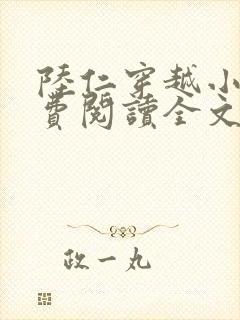 陸仁穿越小
費閱讀全文
政一丸